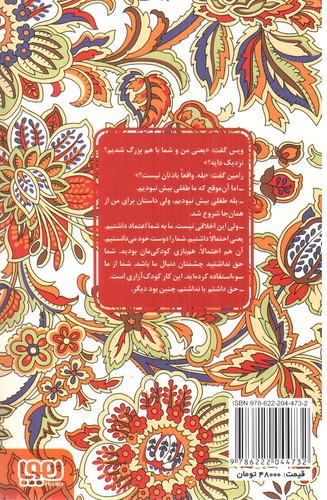 ویس گفت: «یعنی من و شما با هم بزرگ شدیم؟
نزدیک دایه؟»
رامین گفت: «بله. واقعاً یادتان نیست؟»
ـ اما آن موقع که ما طفلی بیش نبودیم.
ـ بله طفلی بیش نبودیم، ولی داستان برای من از
همان‌جا شروع شد.
ـ ولی این اخلاقی نیست. ما به شما اعتماد داشتیم.
یعنی احتمالاً داشتیم. شما را دوست خود می‌دانستیم.
آن هم احتمالاً. هم‌بازی کودکی‌مان بودید. شما
حق نداشتید چشمتان دنبال ما باشد. شما از ما
سوءاستفاده کرده‌اید. این کار کودک‌آزاری است.
ـ حق داشتم یا نداشتم، چنین بود دیگر.
ISBN 978-622-204-473-2
9 786222 044732
هوپا
Hoopa
قیمت: ۴۸۰۰۰ تومان